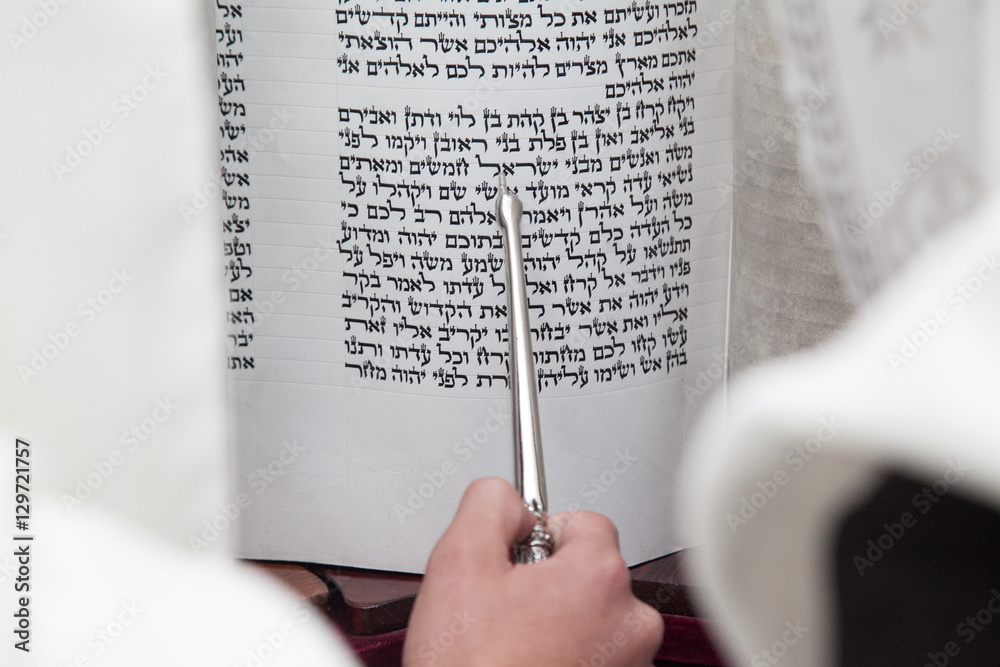 תזכרו ועשיתם את כל מצותי והייתם קדשים
לאלהיכם אני יהוה אלהיכם אשר הוצאתי
אתכם מארץ מצרים להיות לכם לאלהים אני
יהוה אלהיכם
ויקח קרח בן יצהר בן קהת בן לוי ודתן ואבירם
בני אליאב ואון בן פלת בני ראובן ויקמו לפני
משה ואנשים מבני ישראל חמשים ומאתים
נשיאי עדה קראי מועד שם ויקהלו על
משה ועל אהרן אלהם רב לכם כי
כל העדה כלם קדשים יהוה ומדוע
תתנשאו על קהל יהוה משה ויפל על
פניו וידבר אל קרח כל עדתו לאמר בקר
וידע יהוה את אשר ואת הקדוש והקריב
אליו ואת אשר יבחר בו יקריב אליו זאת
עשו קחו לכם מחתות קרח וכל עדתו ותנו
בהן אש ושימו עליהן לפני יהוה מחר
Adobe Stock
129721757